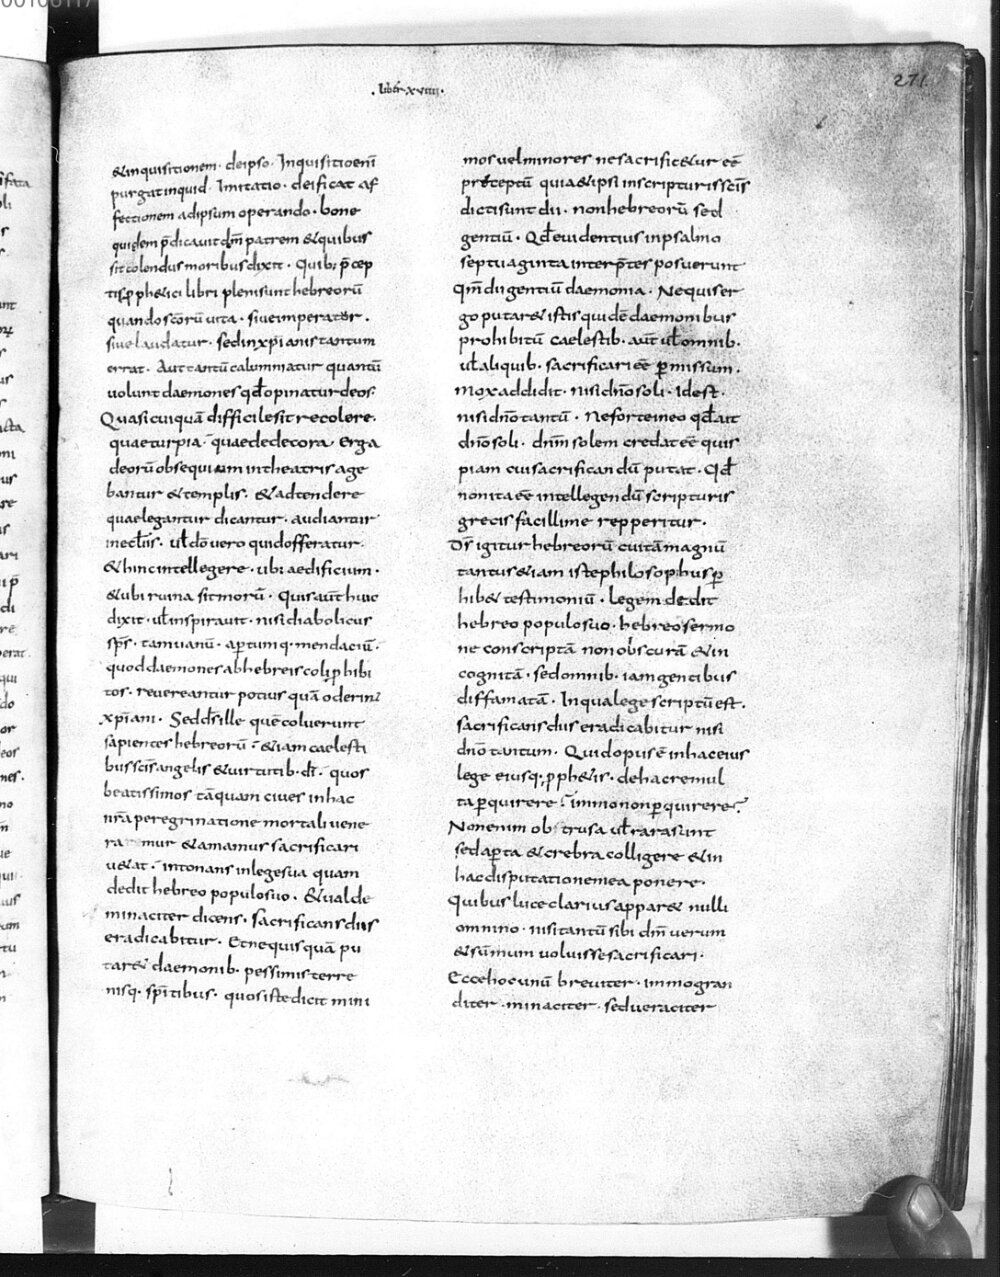 liber xviiii
271
&inquisitionem · deipso · Inquisitioenī
purgat inquid · Imitatio · deificat af
fectionem adipsum operando · bone
quidem p̄dicauit dm̄ patrem & quibus
sit colendus moribus dixit · Quib; p̄cep
tis ꝓph&ici libri plenisunt hebreorū
quando scōrū uita · siue imperatur ·
siue laudatur · sed in xp̄ianis tantum
errat · Aut tantū calumniatur quantū
uolunt daemones qd̄ opinatur deos ·
Quasi cuiquā difficile sit recolere ·
quae turpia · quae dedecora erga
deorū obsequium in theatris age
bantur & templis · & adtendere
quae legantur dicantur · audiantur
in eccl̄iis · ul̄ dō uero quid offeratur ·
& hinc intellegere · ubi aedificium ·
& ubi ruina sit morū · Quis aūt huic
dixit · ul̄ inspirauit · nisi diabolicus
sp̄s · tam uanū · apertumq; mendaciū ·
quod daemones ab hebreis coli ꝓhibi
tos · reuereantur potius quā oderint
xp̄iani · Sed d̄s ille quē coluerunt
sapientes hebreorū · &iam caelesti
bus sc̄is angelis & uirtutib · dī · quos
beatissimos tāquam ciues in hac
nr̄a peregrinatione mortali uene
ramur & amamur sacrificari
u&at · intonans in lege sua quam
dedit hebreo populo suo · & ualde
minaciter dicens · sacrificans diis
eradicabitur · Et ne quisquā pu
tar& daemonib · pessimis terre
nisq · sp̄itibus · quos iste dicit mini
mos uel minores ne sacrific&ur eē
preceptū quia & ipsi in scripturis sc̄is
dicti sunt dii · non hebreorū sed
gentiū · Qd̄ euidentius in psalmo
septuaginta interp̄tes posuerunt
Qm̄ dii gentiū daemonia · Ne quis er
go putar& istis quidē daemonibus
prohibitū caelestib · aūt ul̄ omnib ·
ul̄ aliquib · sacrificari eē ꝑmissum ·
Mox addidit · nisi dn̄o soli · idest ·
nisi dn̄o tantū · Ne forte in eo qd̄ ait
dn̄o soli · dnm̄ solem credat eē quis
piam cui sacrificandū putat · Qd̄
non ita eē intellegendū scripturis
grecis facillime repperitur ·
Ds̄ igitur hebreorū cui tā magnū
tantus &iam iste philosophus ꝑ
hib& testimoniū · legem dedit
hebreo populo suo · hebreo sermo
ne conscriptā non obscurā & in
cognitā · sed omnib · iam gentibus
diffamatā · In qua lege scriptū est ·
sacrificans diis eradicabitur nisi
dn̄o tantum · Quid opus ē in hac eius
lege eiusq; ꝓph&is · de hac re mul
ta ꝑquirere · immo non ꝑquirere ·
Non enim obstrusa ul̄ rara sunt
sed aꝑta & crebra colligere & in
hac disputatione mea ponere ·
Quibus luce clarius appar& nulli
omnino · nisi tantū sibi dm̄ uerum
& sūmum uoluisse sacrificari ·
Ecce hoc unū breuiter · immo gran
diter · minaciter · sed ueraciter